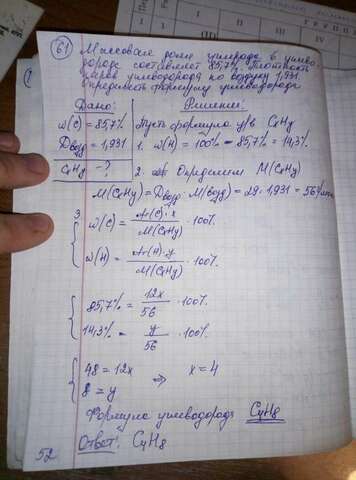 61 Массовая доля углерода в углево-
дороде составляет 85,7%. Плотность
паров углеводорода по воздуху 1,931
Определить формулу углеводорода
Дано: Решение:
ω(C) = 85,7% Пусть формула у/в CxHy
Dвозд = 1,931 1. ω(H) = 100% - 85,7% = 14,3%
CxHy - ? 2. Определим M(CxHy)
M(CxHy) = Dвозд · M(возд) = 29 · 1,931 = 56
3. ω(C) = Ar(C)·x / M(CxHy) · 100%
ω(H) = Ar(H)·y / M(CxHy) · 100%
85,7% = 12x / 56 · 100%
14,3% = y / 56 · 100%
48 = 12x ⇒ x = 4
8 = y
Формула углеводорода C4H8
Ответ: C4H8
52